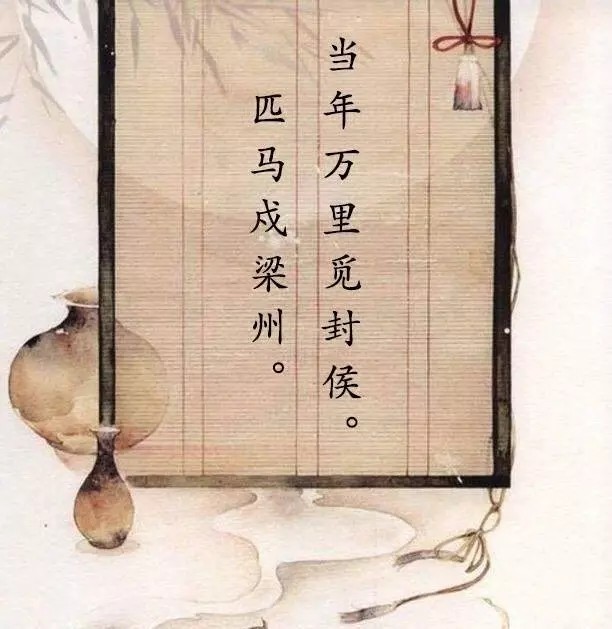 当年万里觅封侯。
匹马戍梁州。